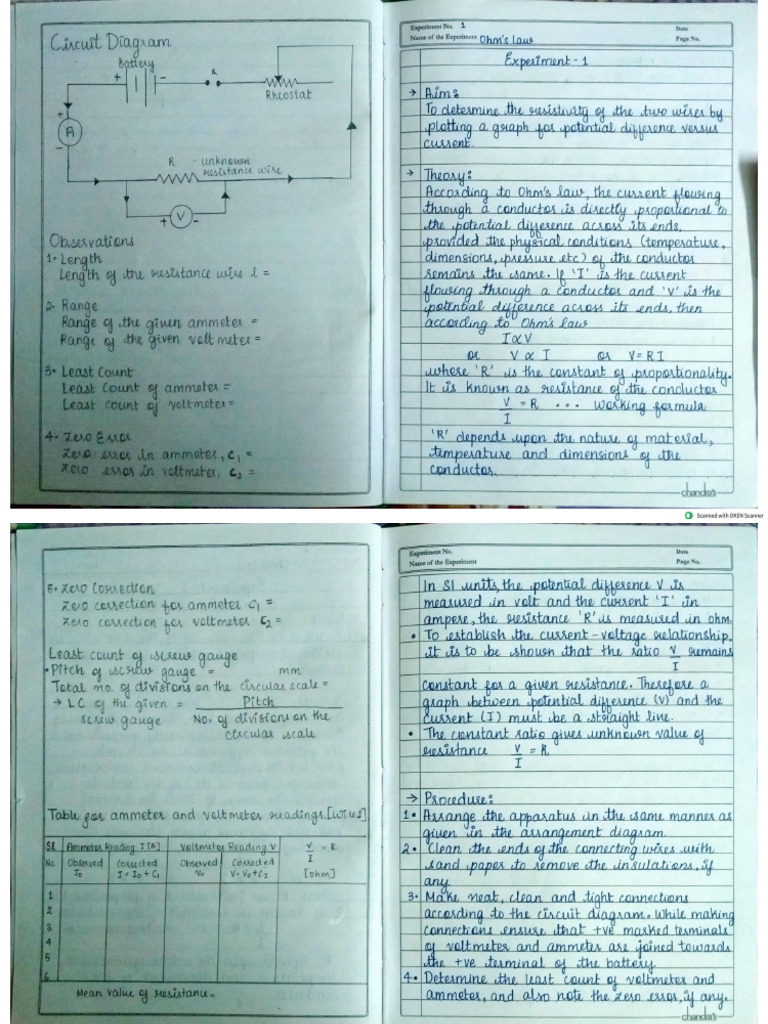 Circuit Diagram
Battery
+ -
K
Rheostat
+
A
-
R - unknown
resistance wire
+ V -
Observations
1. Length
Length of the resistance wire l =
2. Range
Range of the given ammeter =
Range of the given voltmeter =
3. Least Count
Least Count of ammeter =
Least count of voltmeter =
4. Zero Error
Zero error in ammeter, C₁ =
Zero error in voltmeter, C₂ =
Experiment No. 1
Date
Name of the Experiment Ohm's law
Page No.
Experiment - 1
→ Aim:
To determine the resistivity of the two wires by
plotting a graph for potential difference versus
current.
→ Theory:
According to Ohm's law, the current flowing
through a conductor is directly proportional to
the potential difference across its ends,
provided the physical conditions (temperature,
dimensions, pressure etc) of the conductor
remains the same. If 'I' is the current
flowing through a conductor and 'V' is the
potential difference across its ends, then
according to Ohm's law
I ∝ V
or V ∝ I or V = RI
where 'R' is the constant of proportionality.
It is known as resistance of the conductor
V/I = R ... Working formula
'R' depends upon the nature of material,
temperature and dimensions of the
conductor.
chandra's
Scanned with OKEN Scanner
5. Zero Correction
Zero correction for ammeter C₁ =
Zero correction for voltmeter C₂ =
Least count of screw gauge
• Pitch of screw gauge = mm
Total no. of divisions on the circular scale =
→ LC of the given = Pitch
screw gauge No. of divisions on the
circular scale
Table for ammeter and voltmeter readings. [Wire 1]
Sl No. Ammeter Reading I [A] Voltmeter Reading V V/I = R
Observed I₀ Corrected I = I₀ + C₁ Observed V₀ Corrected V = V₀ + C₂ [ohm]
1
2
3
4
5
6
Mean value of resistance =
Experiment No.
Date
Name of the Experiment
Page No.
In SI units, the potential difference V is
measured in volt and the current 'I' in
ampere, the resistance 'R' is measured in ohm.
• To establish the current-voltage relationship,
it is to be shown that the ratio V/I remains
constant for a given resistance. Therefore a
graph between potential difference (V) and the
current (I) must be a straight line.
• The constant ratio gives unknown value of
resistance V/I = R.
→ Procedure:
1. Arrange the apparatus in the same manner as
given in the arrangement diagram.
2. Clean the ends of the connecting wires with
sand paper to remove the insulations, if
any
3. Make neat, clean and tight connections
according to the circuit diagram. While making
connections ensure that +ve marked terminals
of voltmeter and ammeter are joined towards
the +ve terminal of the battery.
4. Determine the least count of voltmeter and
ammeter, and also note the zero error, if any.
chandra's